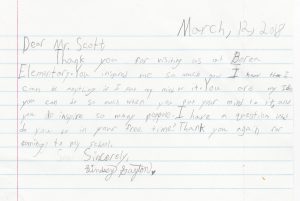 March, 12, 2018
Dear Mr. Scott
Thank you for visiting us at Boren
Elementary. You inspired me so much now I know that I
can be anything if I put my mind to it. You are my idol
you can do so much when you put your mind to it, and
you do inspire so many people. I have a question what
do you do in your free time? Thank you again for
coming to my school.
Sincerely,